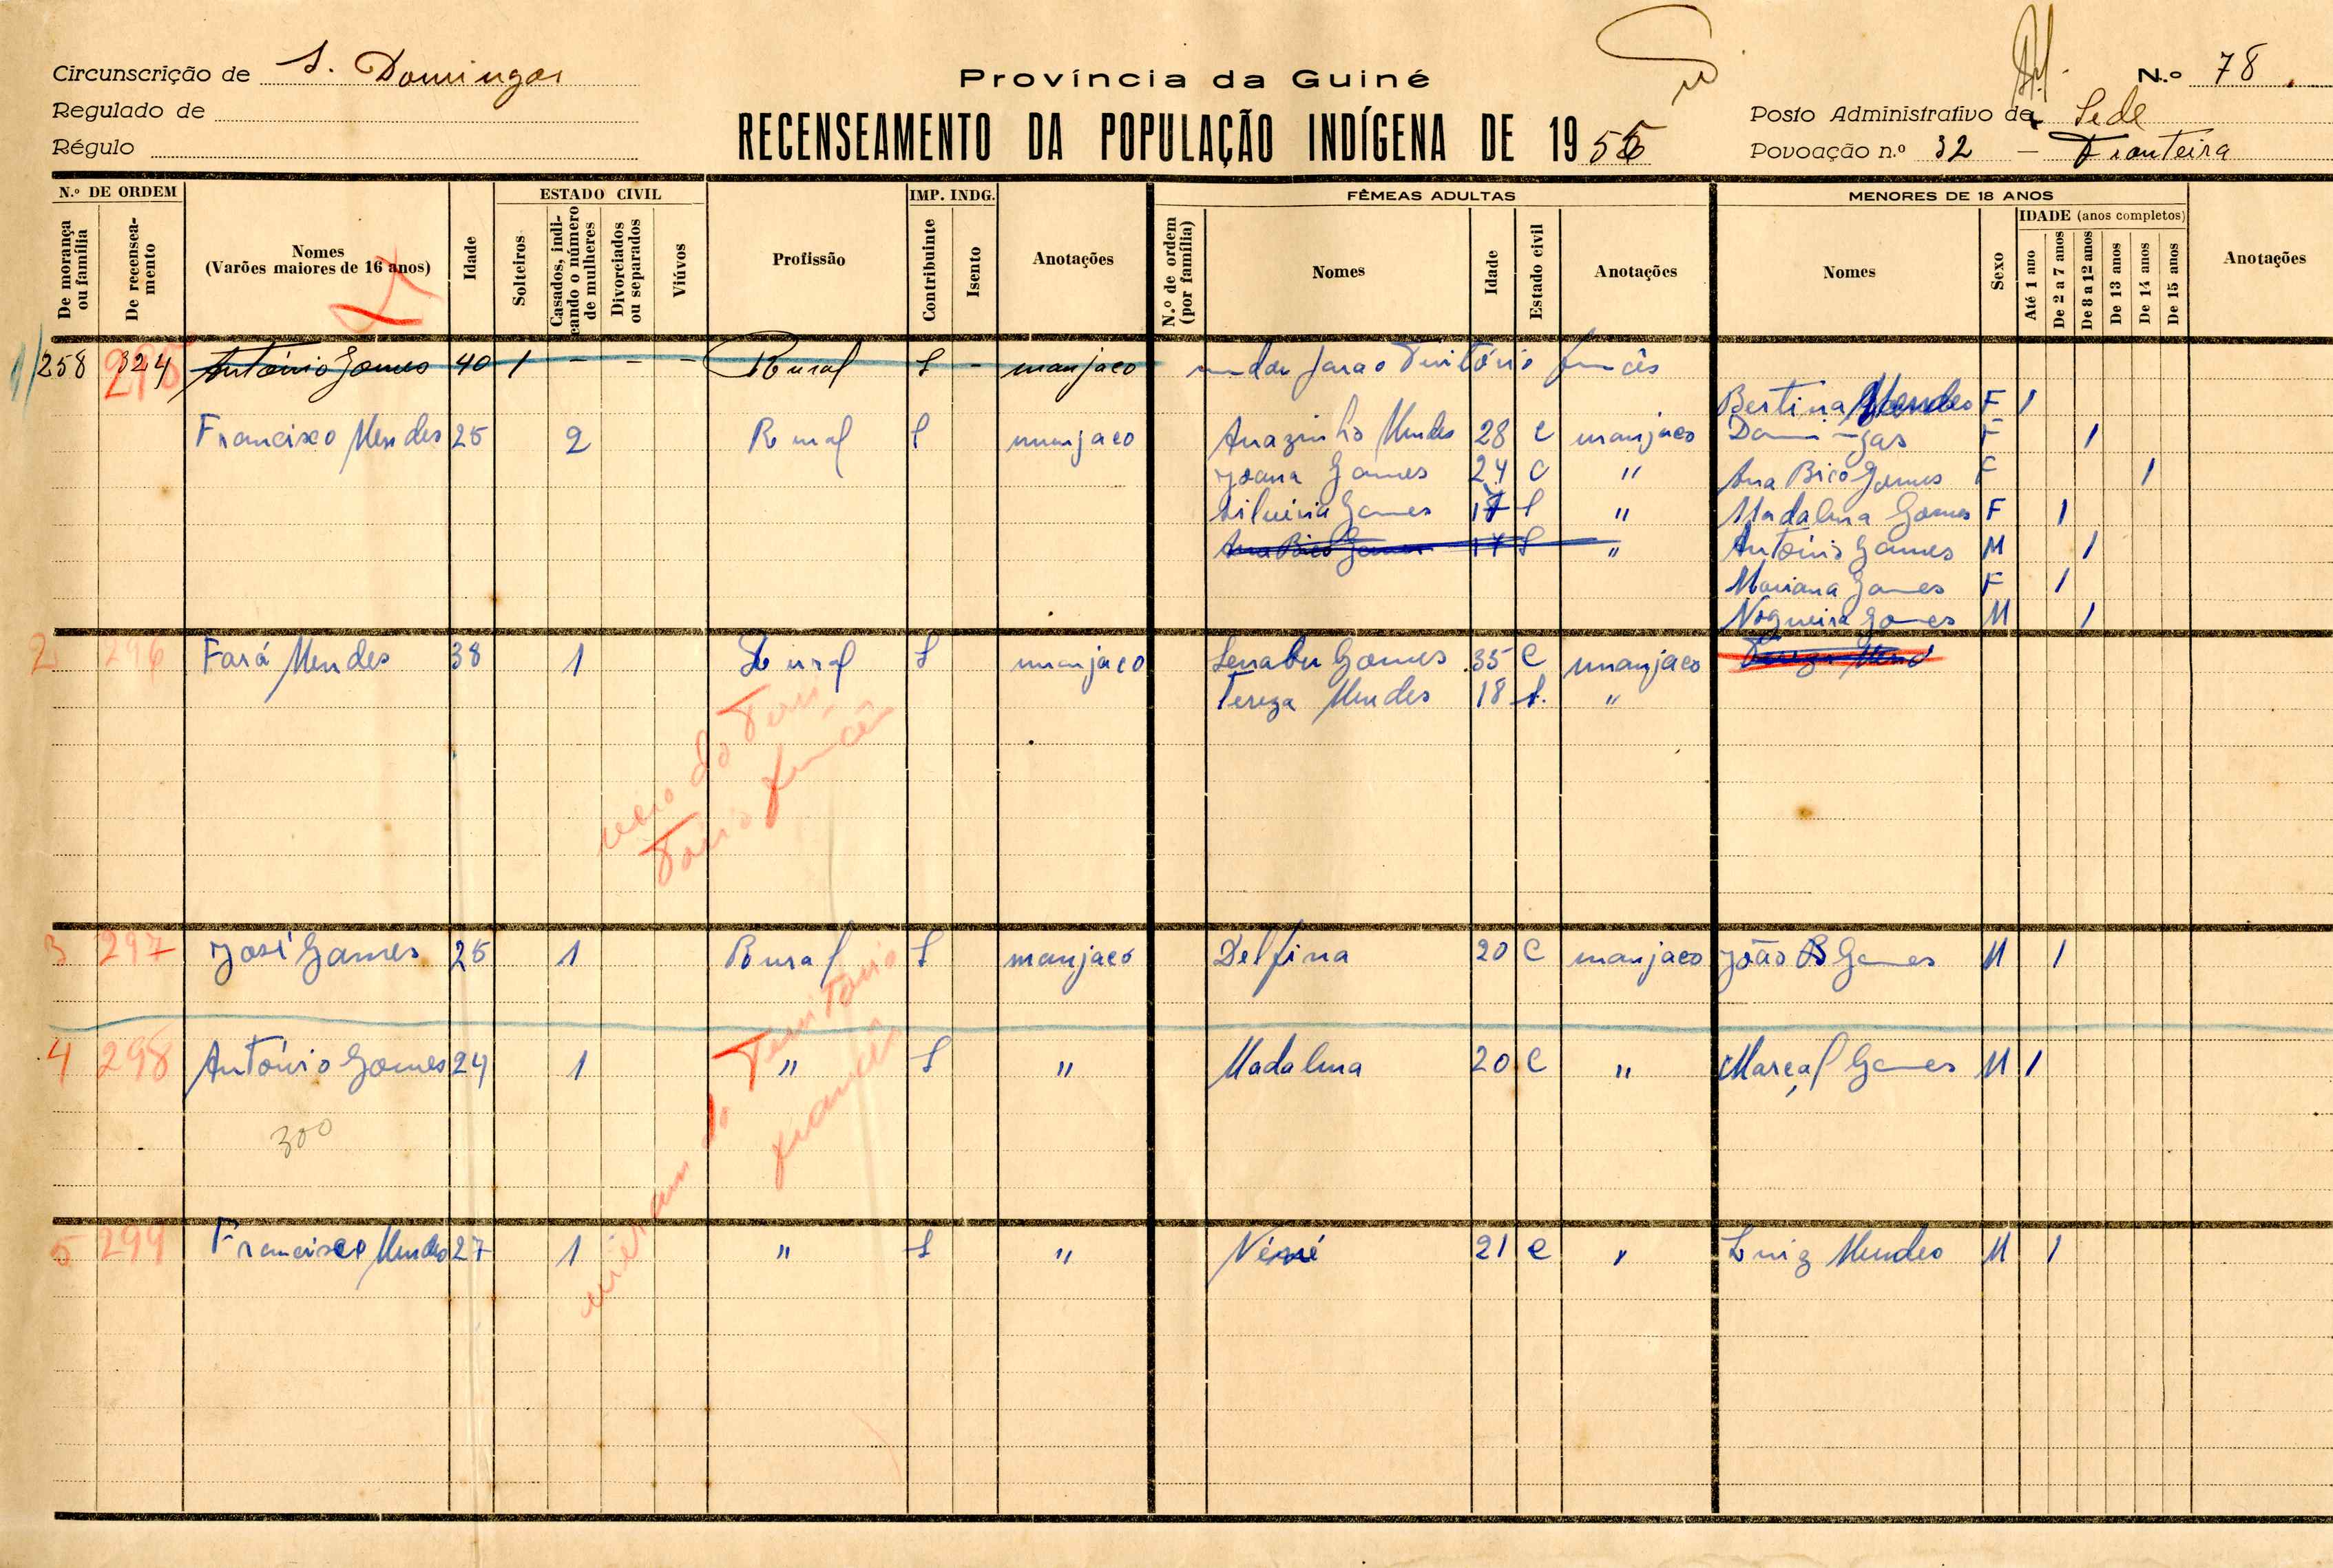 Circunscrição de S. Domingos
Regulado de
Régulo
Província da Guiné
RECENSEAMENTO DA POPULAÇÃO INDÍGENA DE 1955
N.º 78
Posto Administrativo de Sede
Povoação n.º 32 — Fronteira
N.º DE ORDEM
De morança ou família
De recenseamento
Nomes
(Varões maiores de 16 anos)
Idade
ESTADO CIVIL
Solteiros
Casados, indicando o número de mulheres
Divorciados ou separados
Viúvos
Profissão
IMP. INDG.
Contribuinte
Isento
Anotações
FÊMEAS ADULTAS
N.º de ordem (por família)
Nomes
Idade
Estado civil
Anotações
MENORES DE 18 ANOS
Nomes
Sexo
IDADE (anos completos)
Até 1 ano
De 2 a 7 anos
De 8 a 12 anos
De 13 anos
De 14 anos
De 15 anos
Anotações
1/ 258 324 295 António Gomes 40 1 - - - Rural S - manjaco mudou para o Território francês
Bertina Mendes F 1
Francisco Mendes 25 2 Rural S manjaco Anazinha Mendes 28 C manjaco Domingas F 1
Joana Gomes 24 C " Ana Bico Gomes F 1
Silvéria Gomes 17 S " Madalena Gomes F 1
Ana Bico Gomes 17 S " António Gomes M 1
Mariana Gomes F 1
Nogueira Gomes M 1
2 296 Fará Mendes 38 1 Rural S manjaco Senabu Gomes 35 C manjaco Tereza Mend
Tereza Mendes 18 S. "
veio do Terri
tório francês
3 297 José Gomes 25 1 Rural S manjaco Delfina 20 C manjaco João B Gomes M 1
4 298 António Gomes 24 1 " S " Madalena 20 C " Marçal Gomes M 1
300
vieram do Território
francês
5 299 Francisco Mendes 27 1 " S " Néné 21 C " Luiz Mendes M 1